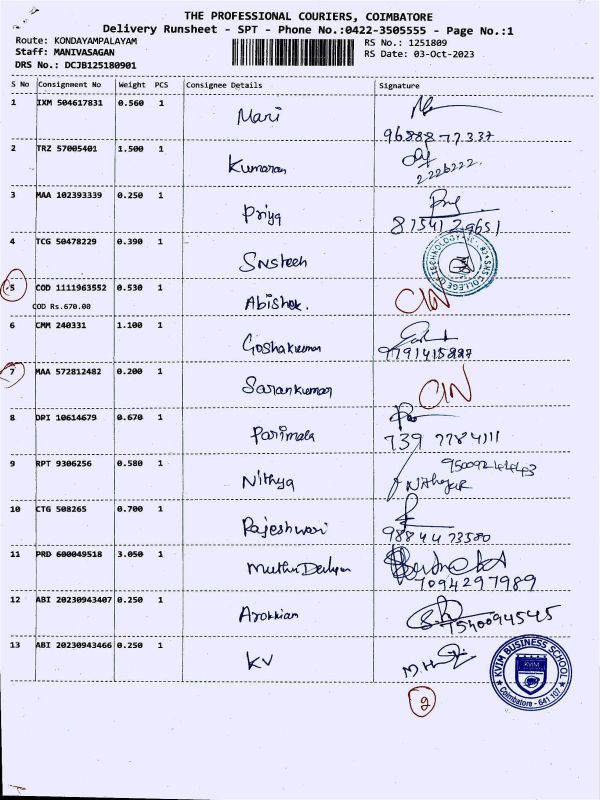 THE PROFESSIONAL COURIERS, COIMBATORE
Delivery Runsheet - SPT - Phone No.:0422-3505555 - Page No.:1
Route: KONDAYAMPALAYAM
RS No.: 1251809
Staff: MANIVASAGAN
RS Date: 03-Oct-2023
DRS No.: DCJB125180901
S No Consignment No Weight PCS Consignee Details Signature
1 IXM 504617831 0.560 1 Mani
96888 77337
2 TRZ 57005401 1.500 1 Kumaran
2226222.
3 MAA 102393339 0.250 1 Priya
87541 29651
4 TCG 50478229 0.390 1 Snstech
5 COD 1111963552 0.530 1 Abishek. CIN
COD Rs.670.00
6 CMM 240331 1.100 1 Goshakumar
9791415887
7 MAA 572812482 0.200 1 Sarankumar CIN
8 DPI 10614679 0.670 1 Parimala
739 7784111
9 RPT 9306256 0.580 1 Nithya
10 CTG 508265 0.700 1 Rajeshwari
98844 73580
11 PRD 600049518 3.050 1 Muthu
7094297989
12 ABI 20230943407 0.250 1 Arokkian
7540094545
13 ABI 20230943466 0.250 1 KV
KVIM BUSINESS SCHOOL
KVIM
Coimbatore - 641 107
2